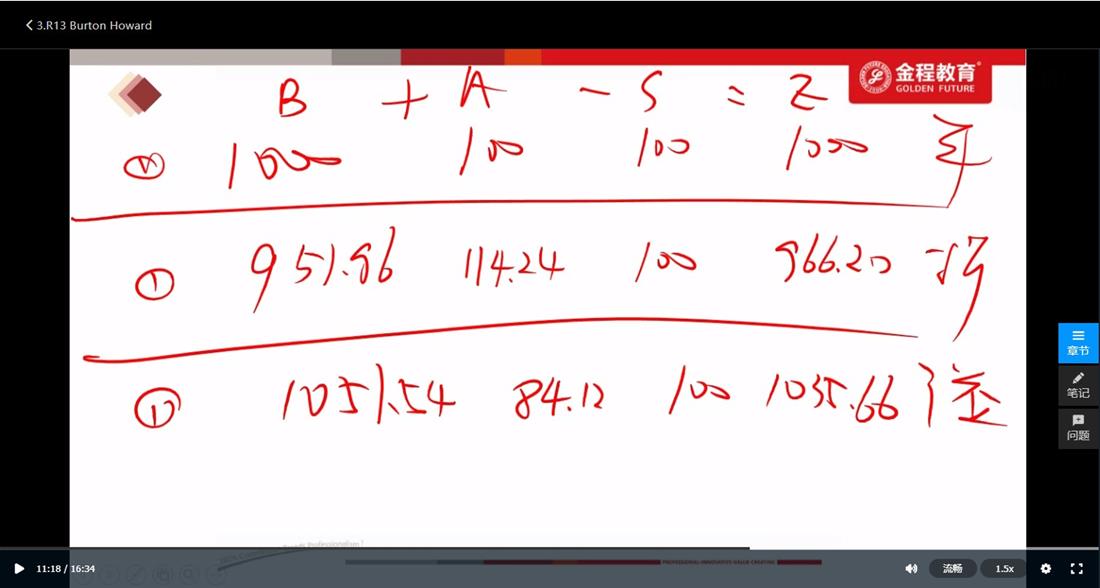 3.R13 Burton Howard
金程教育
GOLDEN FUTURE
B + A - S = Z
Ⅳ 1000 100 100 1000 平
Ⅰ 951.96 114.24 100 966.20 折
Ⅱ 1051.54 84.12 100 1035.66 } 溢
章节
笔记
问题
PROFESSIONAL·INNOVATIVE·VALUE CREATING
11:18 / 16:34
流畅
1.5x